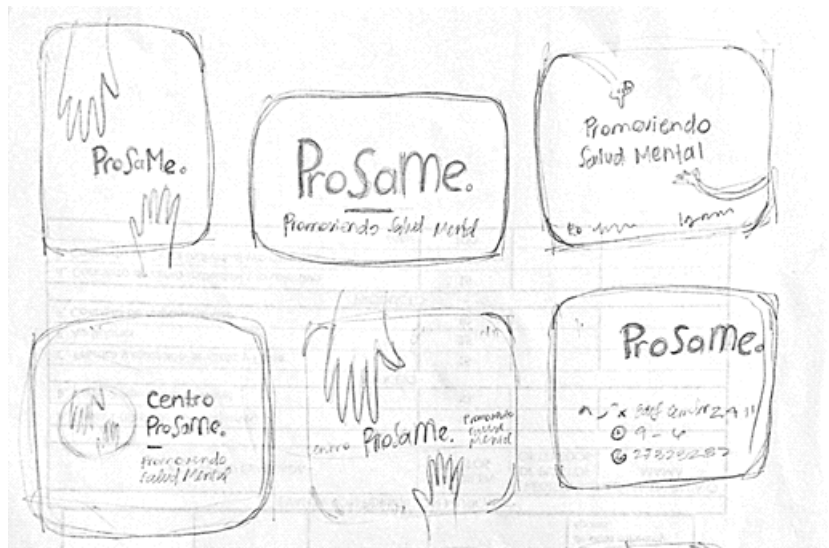 ProSaMe.
ProSaMe.
Promoviendo Salud Mental
Promoviendo
Salud Mental
Centro
ProSaMe.
Promoviendo
Salud Mental
centro ProSaMe.
Promoviendo
Salud
Mental
ProSaMe.
9-6